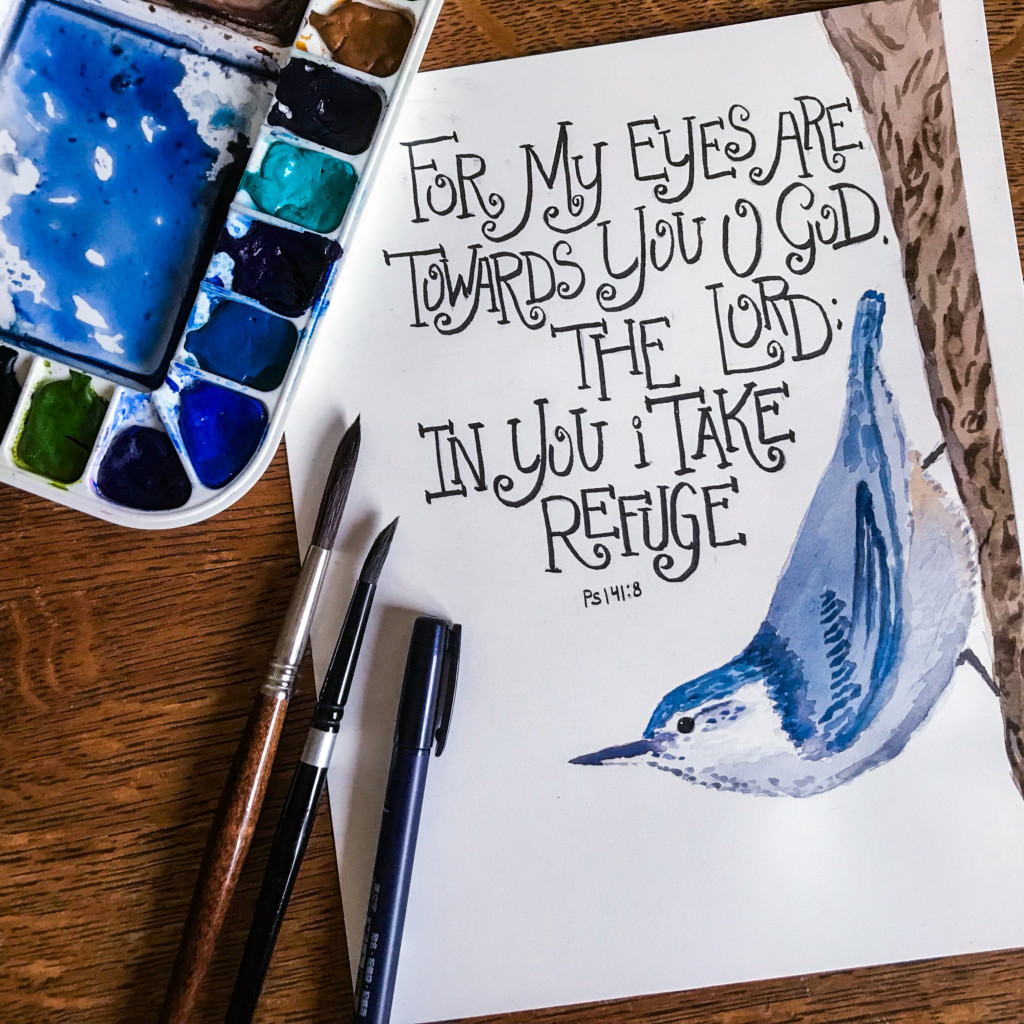 FOR MY EYES ARE
TOWARDS YOU O GOD.
THE LORD;
IN YOU i TAKE
REFUGE
Ps 141:8